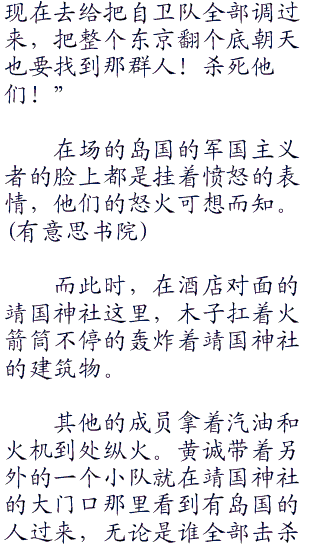 现在去给把自卫队全部调过
来，把整个东京翻个底朝天
也要找到那群人！杀死他
们！”
在场的岛国的军国主义
者的脸上都是挂着愤怒的表
情，他们的怒火可想而知。
(有意思书院)
而此时，在酒店对面的
靖国神社这里，木子扛着火
箭筒不停的轰炸着靖国神社
的建筑物。
其他的成员拿着汽油和
火机到处纵火。黄诚带着另
外的一个小队就在靖国神社
的大门口那里看到有岛国的
人过来，无论是谁全部击杀